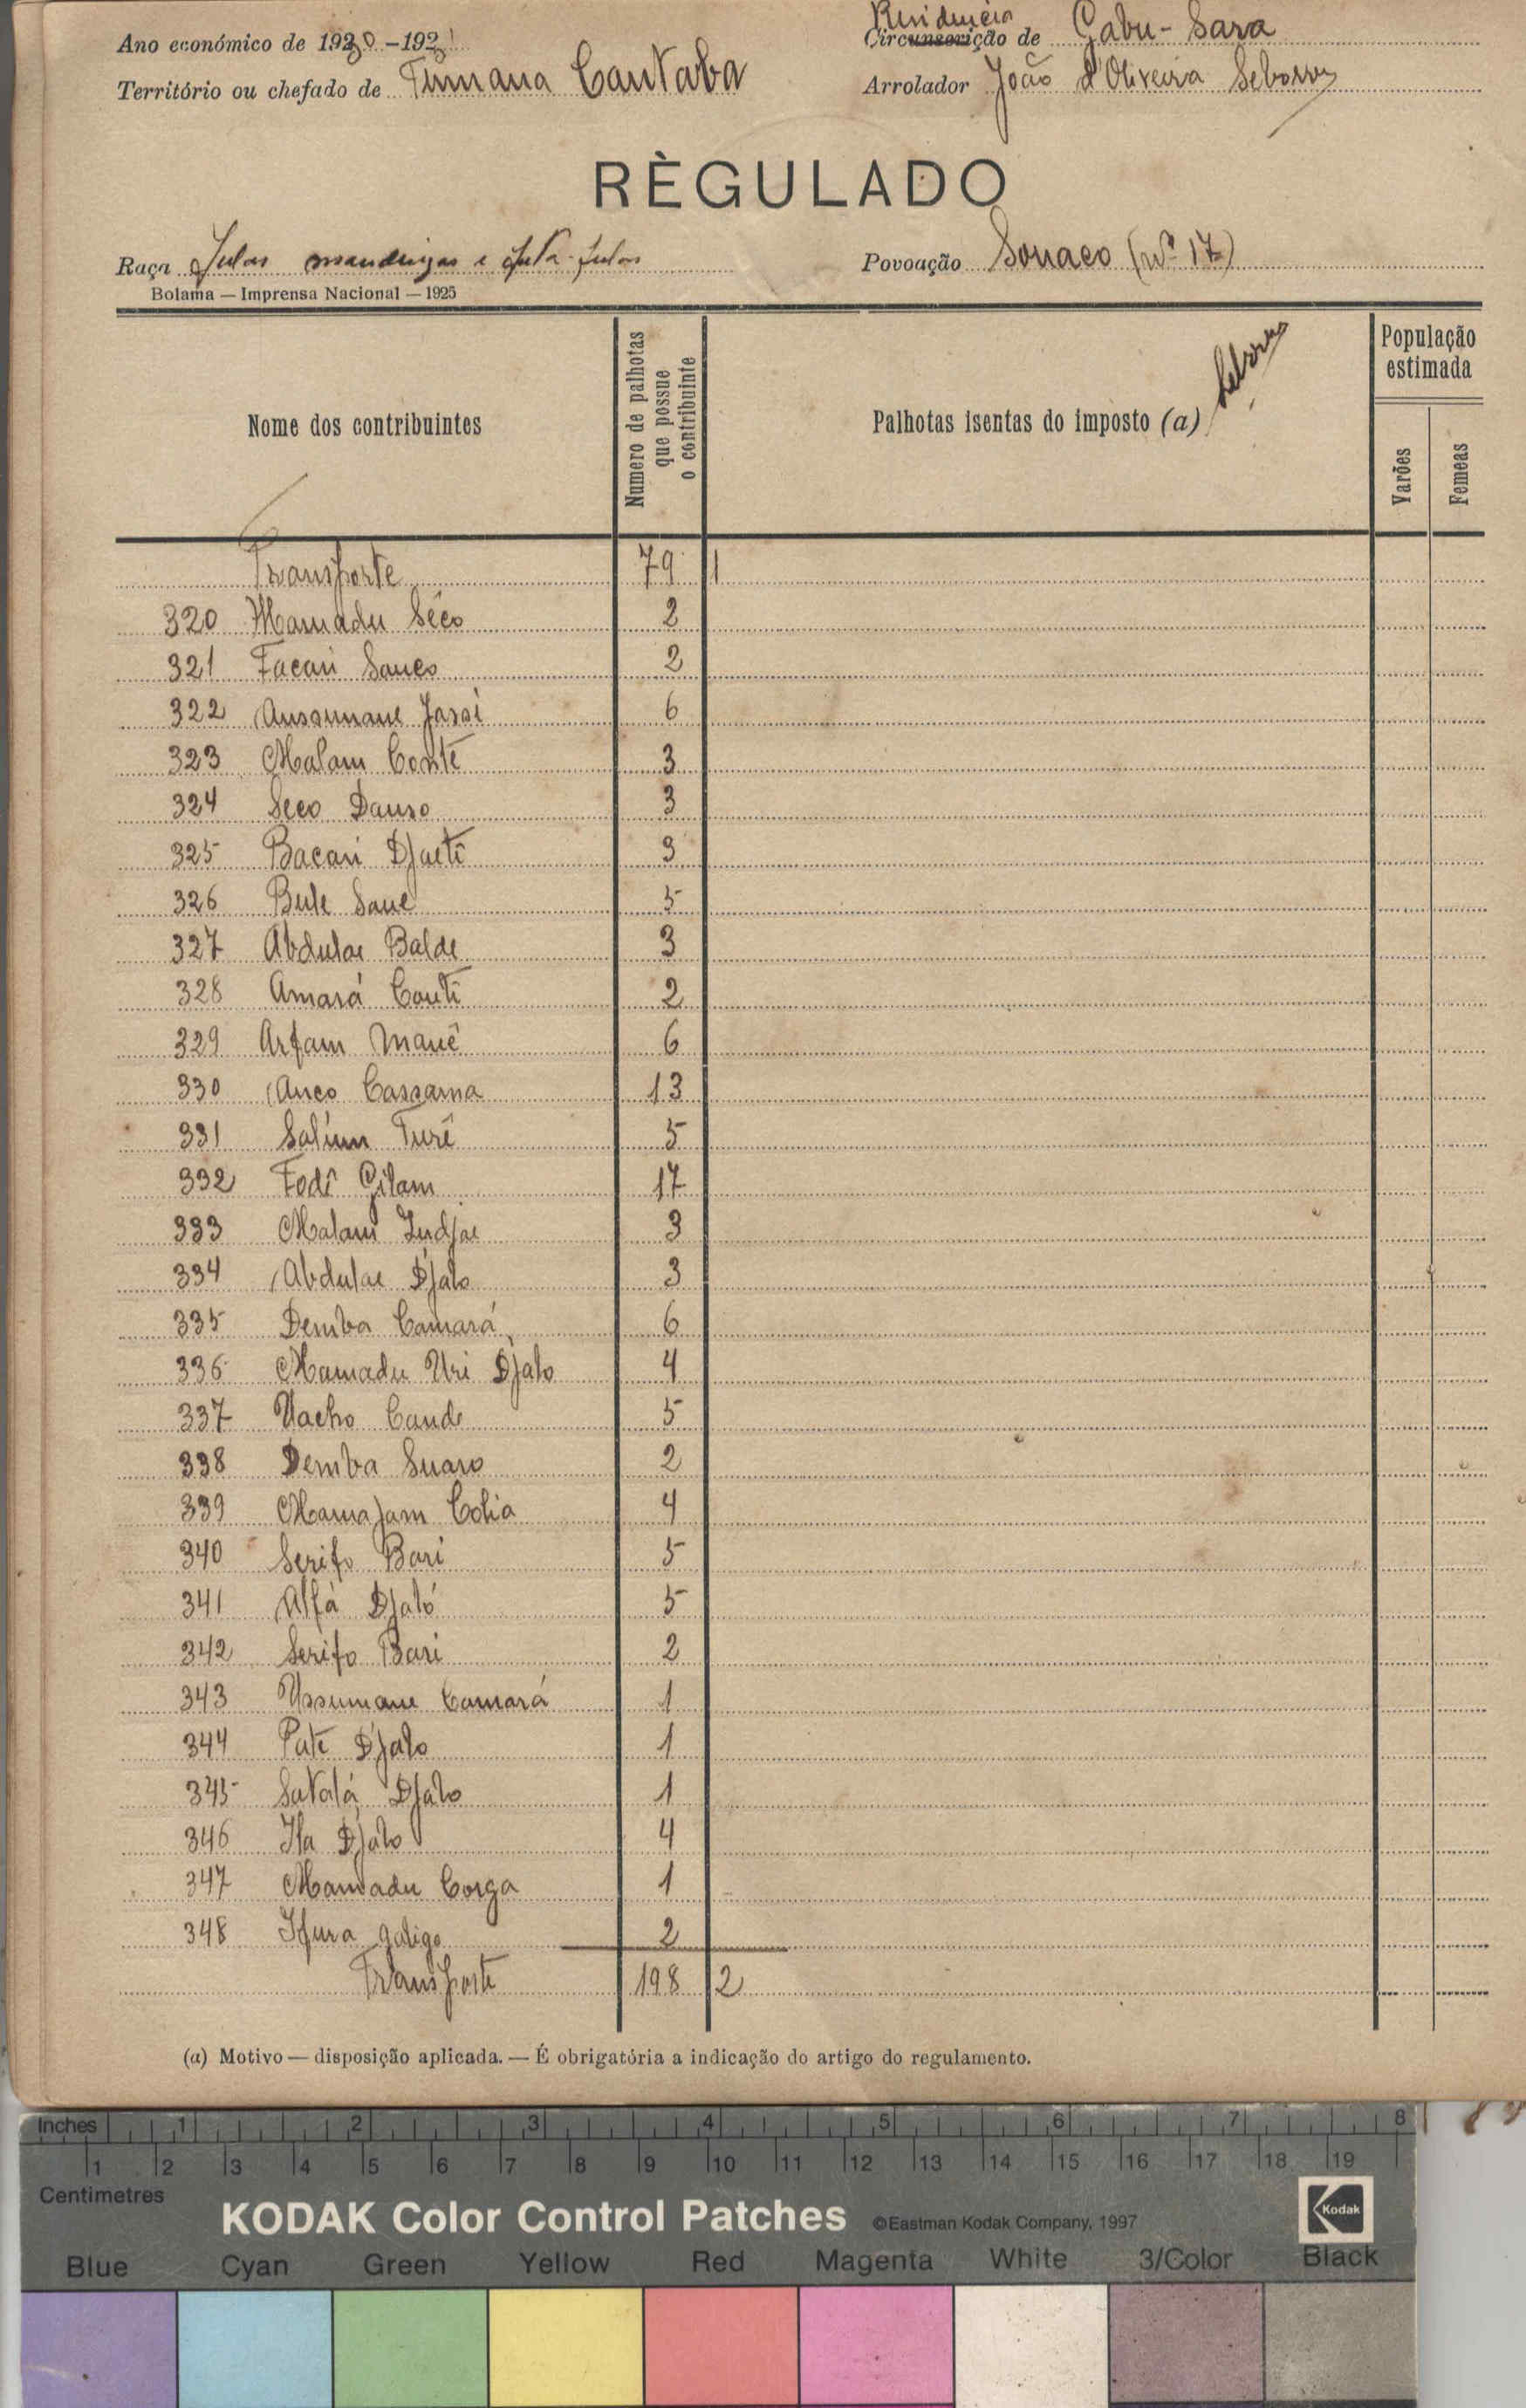 Ano económico de 1930-1931
Residencia
Circunscrição de Gabu-Sara
Território ou chefado de Tumana Cantaba
Arrolador João d'Oliveira
RÈGULADO
Raça Fulas mandingas e futa-fulas
Povoação Sonaco (nº 17)
Bolama — Imprensa Nacional — 1925
Nome dos contribuintes
Numero de palhotas que possue o contribuinte
Palhotas isentas do imposto (a)
População estimada
Varões
Femeas
Transporte 79 1
320 Mamadu Sêco 2
321 Facari Saneo 2
322 Aussumane Jassi 6
323 Malam Conté 3
324 Seco Danso 3
325 Bacari Djaetê 3
326 Bule Sane 5
327 Abdulae Balde 3
328 Amará Conté 2
329 Arfam Mané 6
330 Anco Cassama 13
331 Salium Turé 5
332 Fodê Gilam 17
333 Malam Indjai 3
334 Abdulae Djalo 3
335 Demba Camará 6
336 Mamadu Uri Djalo 4
337 Uacho Cande 5
338 Demba Suaro 2
339 Mamajam Colia 4
340 Serifo Bari 5
341 Alfá Djaló 5
342 Serifo Bari 2
343 Ussumane Camará 1
344 Pate Djalo 1
345 Satalá Djalo 1
346 Ila Djalo 4
347 Mamadu Corga 1
348 Ifura galigo 2
Transporte 198 2
(a) Motivo — disposição aplicada. — É obrigatória a indicação do artigo do regulamento.
Inches 1 2 3 4 5 6 7 8
1 2 3 4 5 6 7 8 9 10 11 12 13 14 15 16 17 18 19
Centimetres
KODAK Color Control Patches ©Eastman Kodak Company, 1997 Kodak
Blue Cyan Green Yellow Red Magenta White 3/Color Black